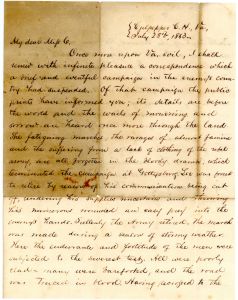 Culpeper C. H. Va,
July 28th, 1863
My dear Miss C,
Once more upon Va. soil, I shall
renew with infinite pleasure a correspondence which
a brief and eventful campaign in the enemy's coun-
try had suspended. Of that campaign the public
prints have informed you; its details are before
the world and the wails of mourning and
sorrow are heard once more through the land.
The fatiguing marches, the ravages of almost famine
and the suffering from a lack of clothing of the
army, are all forgotten in the bloody drama which
terminated the Campaign at Gettysburg. Lee was forced
to retire by reason of his communications being cut
off, rendering his supplies uncertain and throwing
his numerous wounded an easy prey into the
enemy's hands. Sullenly the army retired, the march
was made during a season of stormy weather.
Here the endurance and fortitude of the men were
subjected to the severest test, all were poorly
clad - many were barefooted, and the road
was traced in blood. Having arrived to the